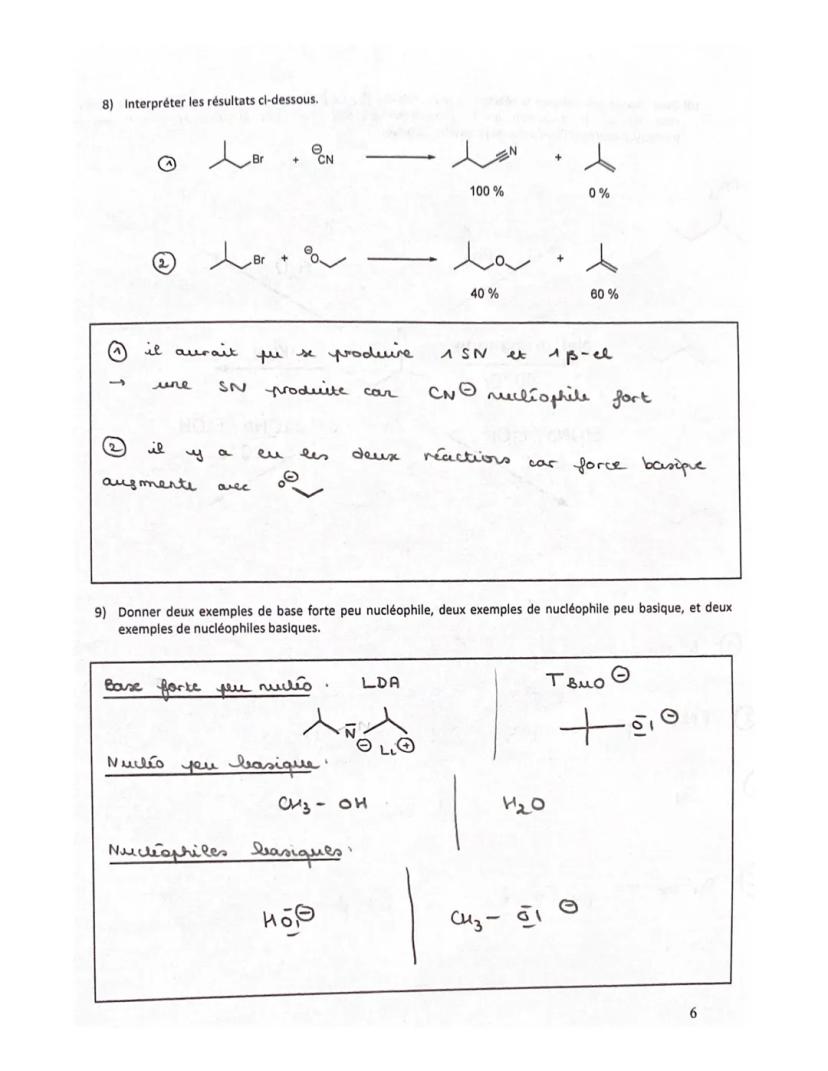 8) Interpréter les résultats ci-dessous.
① Br + ⊖CN N +
100 % 0 %
② Br + ⊖O O +
40 % 60 %
① il aurait pu se produire 1 SN et 1 β-el
→ une SN produite car CN⊖ nucléophile fort
② il y a eu les deux réactions car force basique
augmente avec O⊖
9) Donner deux exemples de base forte peu nucléophile, deux exemples de nucléophile peu basique, et deux
exemples de nucléophiles basiques.
Base forte peu nucléo. LDA TBuO⊖
N⊖ Li⊕ O⊖
Nucléo peu basique.
CH3 - OH H2O
Nucléophiles basiques.
HO⊖ CH3 - O⊖
6